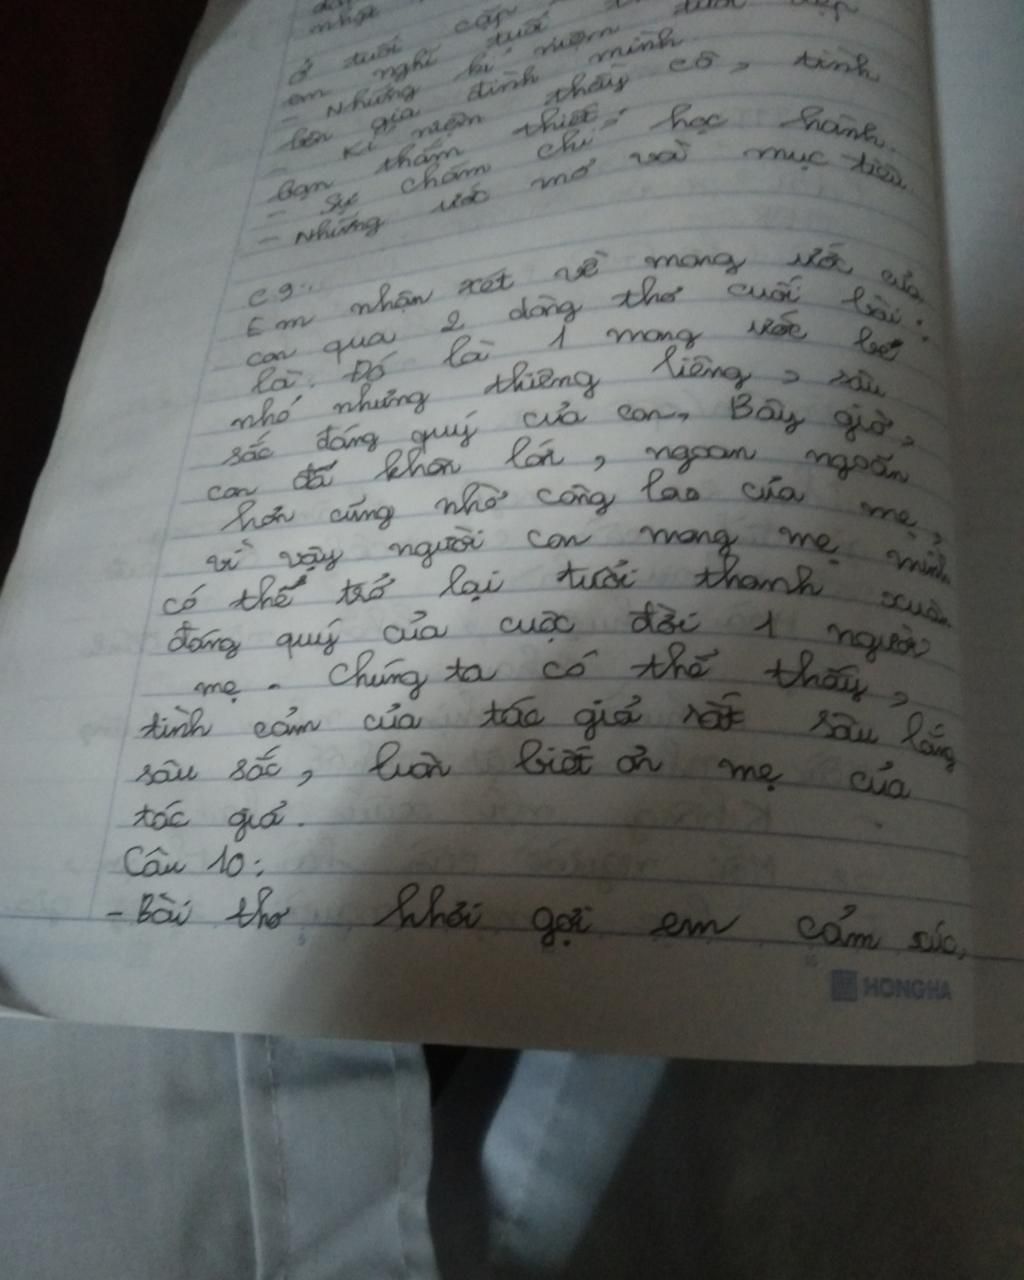 nhất
ở tuổi cấp
em nghĩ tuổi
- Những kỉ niệm
bên gia đình mình
- Kỉ niệm thầy cô, tình
bạn thắm thiết
- sự chăm chỉ, học hành.
- Những ước mơ và mục tiêu
c9:
Em nhận xét về mong ước của
con qua 2 dòng thơ cuối bài:
là: Đó là 1 mong ước bé
nhỏ nhưng thiêng liêng, sâu
sắc đáng quý của con, Bây giờ,
con đã khôn lớn, ngoan ngoãn
hơn cũng nhờ công lao của mẹ,
vì vậy người con mong mẹ mình
có thể trở lại tuổi thanh xuân
đáng quý của cuộc đời 1 người
mẹ. Chúng ta có thể thấy,
tình cảm của tác giả rất sâu lắng
sâu sắc, luôn biết ơn mẹ của
tác giả.
Câu 10:
- Bài thơ khơi gợi em cảm xúc,
HONGHA